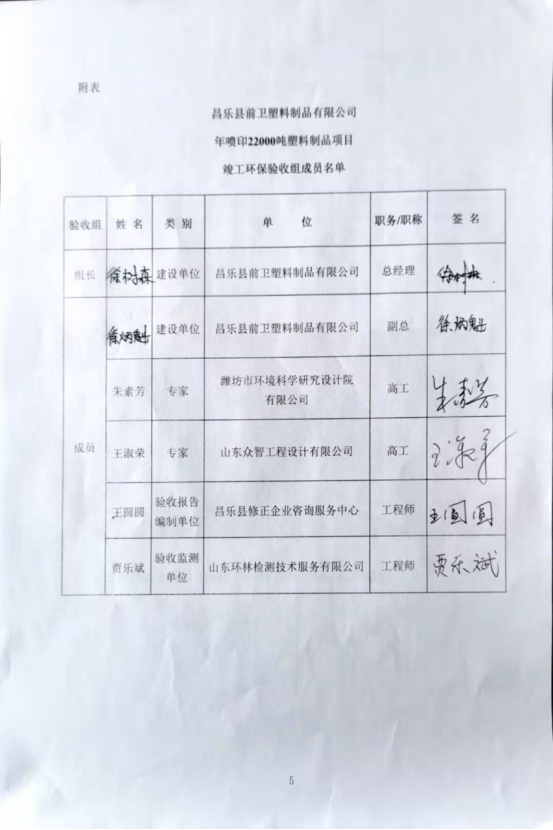 附表
昌乐县前卫塑料制品有限公司
年喷印22000吨塑料制品项目
竣工环保验收组成员名单
验收组 姓名 类别 单位 职务/职称 签名
组长 徐树森 建设单位 昌乐县前卫塑料制品有限公司 总经理 徐树森
徐炳魁 建设单位 昌乐县前卫塑料制品有限公司 副总 徐炳魁
朱素芳 专家 潍坊市环境科学研究设计院
有限公司 高工 朱素芳
成员 王淑荣 专家 山东众智工程设计有限公司 高工 王淑荣
王圆圆 验收报告
编制单位 昌乐县修正企业咨询服务中心 工程师 王圆圆
贾乐斌 验收监测
单位 山东环林检测技术服务有限公司 工程师 贾乐斌
5